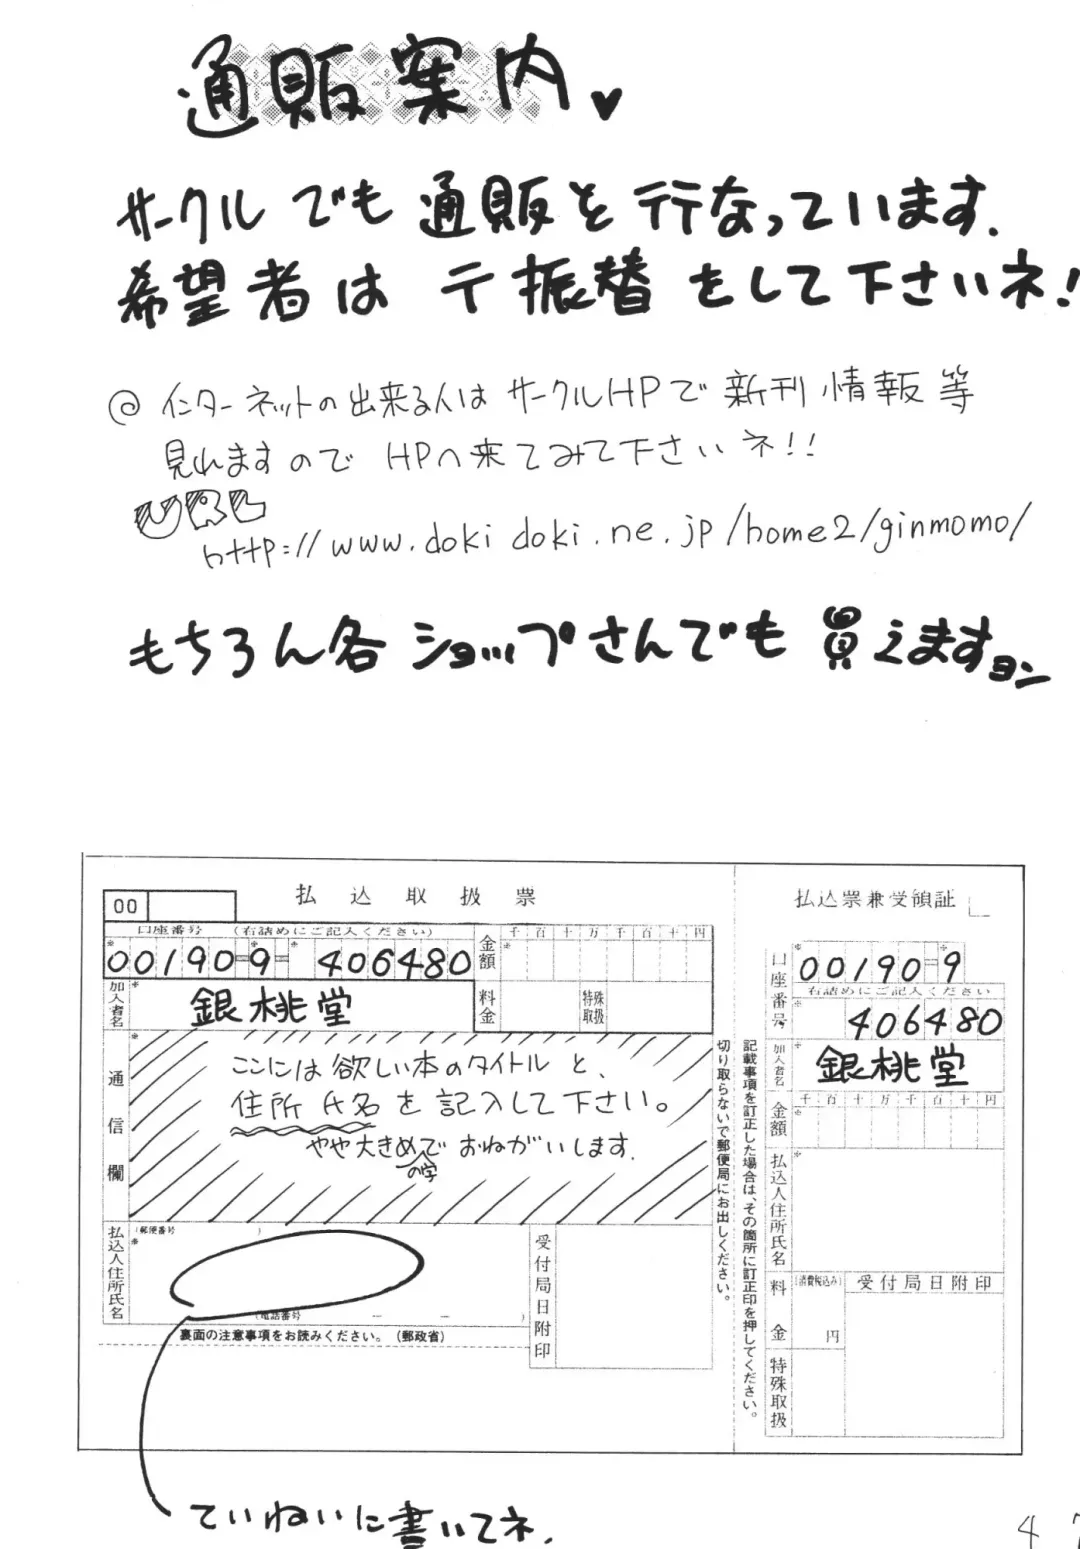 通販案内♥
サークルでも通販を行なっています。
希望者は〒振替をして下さいネ!
@インターネットの出来る人はサークルHPで新刊情報等
見れますのでHPへ来てみて下さいネ!!
URL
http://www.dokidoki.ne.jp/home2/ginmomo/
もちろん各ショップさんでも買えますョン
払込取扱票
00
口座番号 (右詰めにご記入ください)
00190-9-406480
金額
千百十万千百十円
加入者名
銀桃堂
料金
特殊取扱
通信欄
ここには欲しい本のタイトルと、
住所氏名を記入して下さい。
やや大きめの字でおねがいします.
払込人住所氏名
(郵便番号 )
(電話番号 - - )
受付局日附印
裏面の注意事項をお読みください。(郵政省)
切り取らないで郵便局にお出しください。
記載事項を訂正した場合は、その箇所に訂正印を押してください。
払込票兼受領証
口座番号
00190-9
右詰めにご記入ください
406480
加入者名
銀桃堂
金額
千百十万千百十円
払込人住所氏名
料金
(消費税込み)
円
受付局日附印
特殊取扱
ていねいに書いてネ.
47